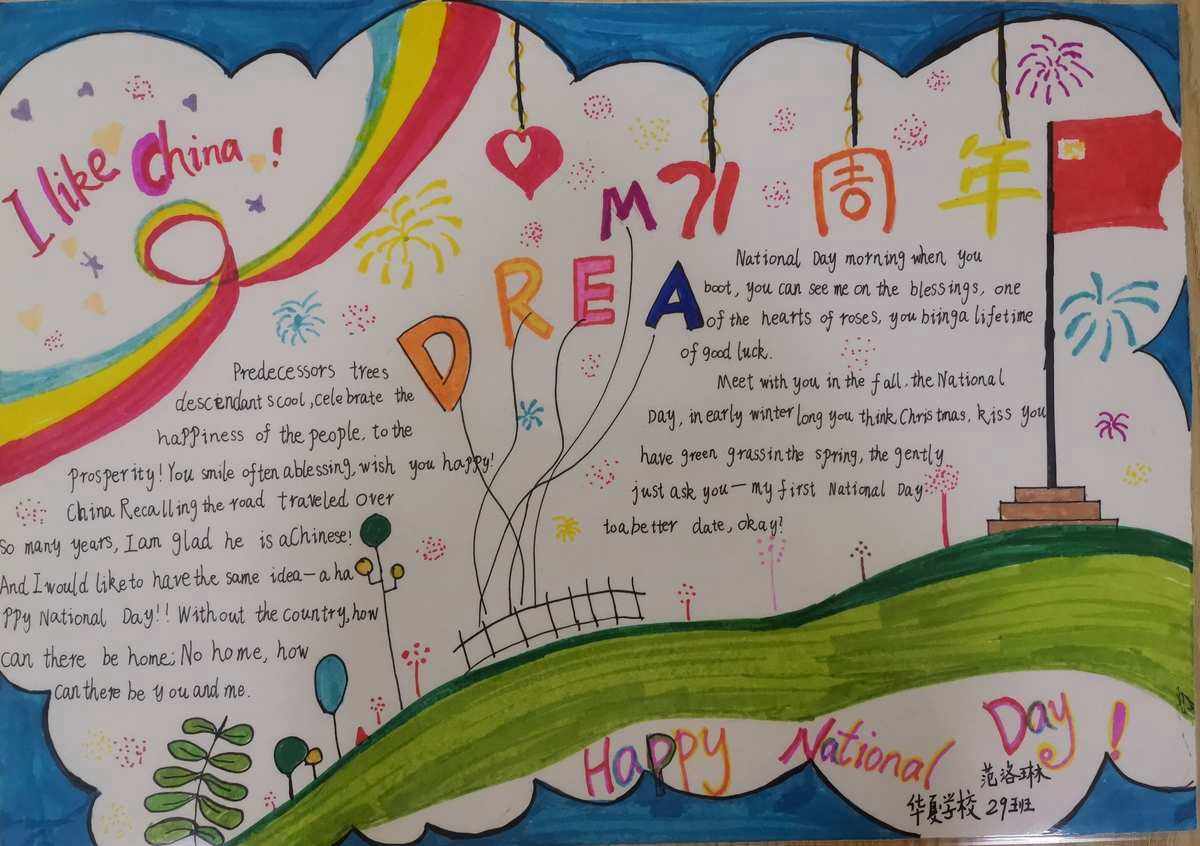 I like China!
M 71 周年
DREA
Predecessors trees
descendant s cool, celebrate the
happiness of the people, to the
prosperity! You smile often ablessing, wish you happy!
China Recalling the road traveled over
so many years, I am glad he is aChinese!
And I would liketo have the same idea—a ha
ppy National Day!! Without the country, how
can there be home; No home, how
can there be you and me.
National Day morning when you
boot, you can see me on the blessings, one
of the hearts of roses, you biinga lifetime
of good luck.
Meet with you in the fall. the National
Day, in early winter long you think, Christmas, kiss you
have green grass in the spring, the gently
just ask you—my first National Day
toa better date, okay?
Happy National Day!
范洛琳
华夏学校 29班